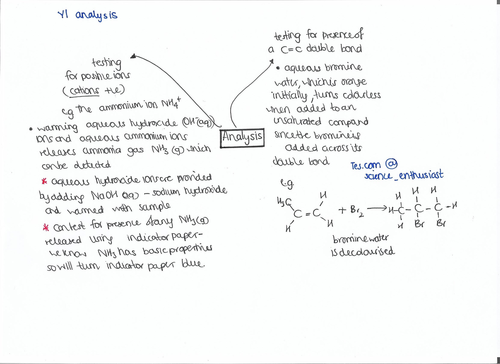 Y1 analysis
testing
for positive ions
(cations +ve)
eg the ammonium ion NH₄⁺
• warming aqueous hydroxide (OH⁻(aq))
ions and aqueous ammonium ions
releases ammonia gas NH₃(g) which
can be detected
* aqueous hydroxide ions are provided
by adding NaOH(aq) – sodium hydroxide
and warmed with sample
* can test for presence of any NH₃(g)
released using indicator paper-
we know NH₃ has basic properties
so will turn indicator paper blue
Analysis
testing for presence of
a C=C double bond
• aqueous bromine
water, which is orange
initially, turns colourless
when added to an
unsaturated compound
since the bromine is
added across its
double bond
Tes.com @
science_enthusiast
eg
H₃C H
C=C + Br₂ → H-C-C-C-H
H H
H H H
H Br Br
bromine water
is decolourised